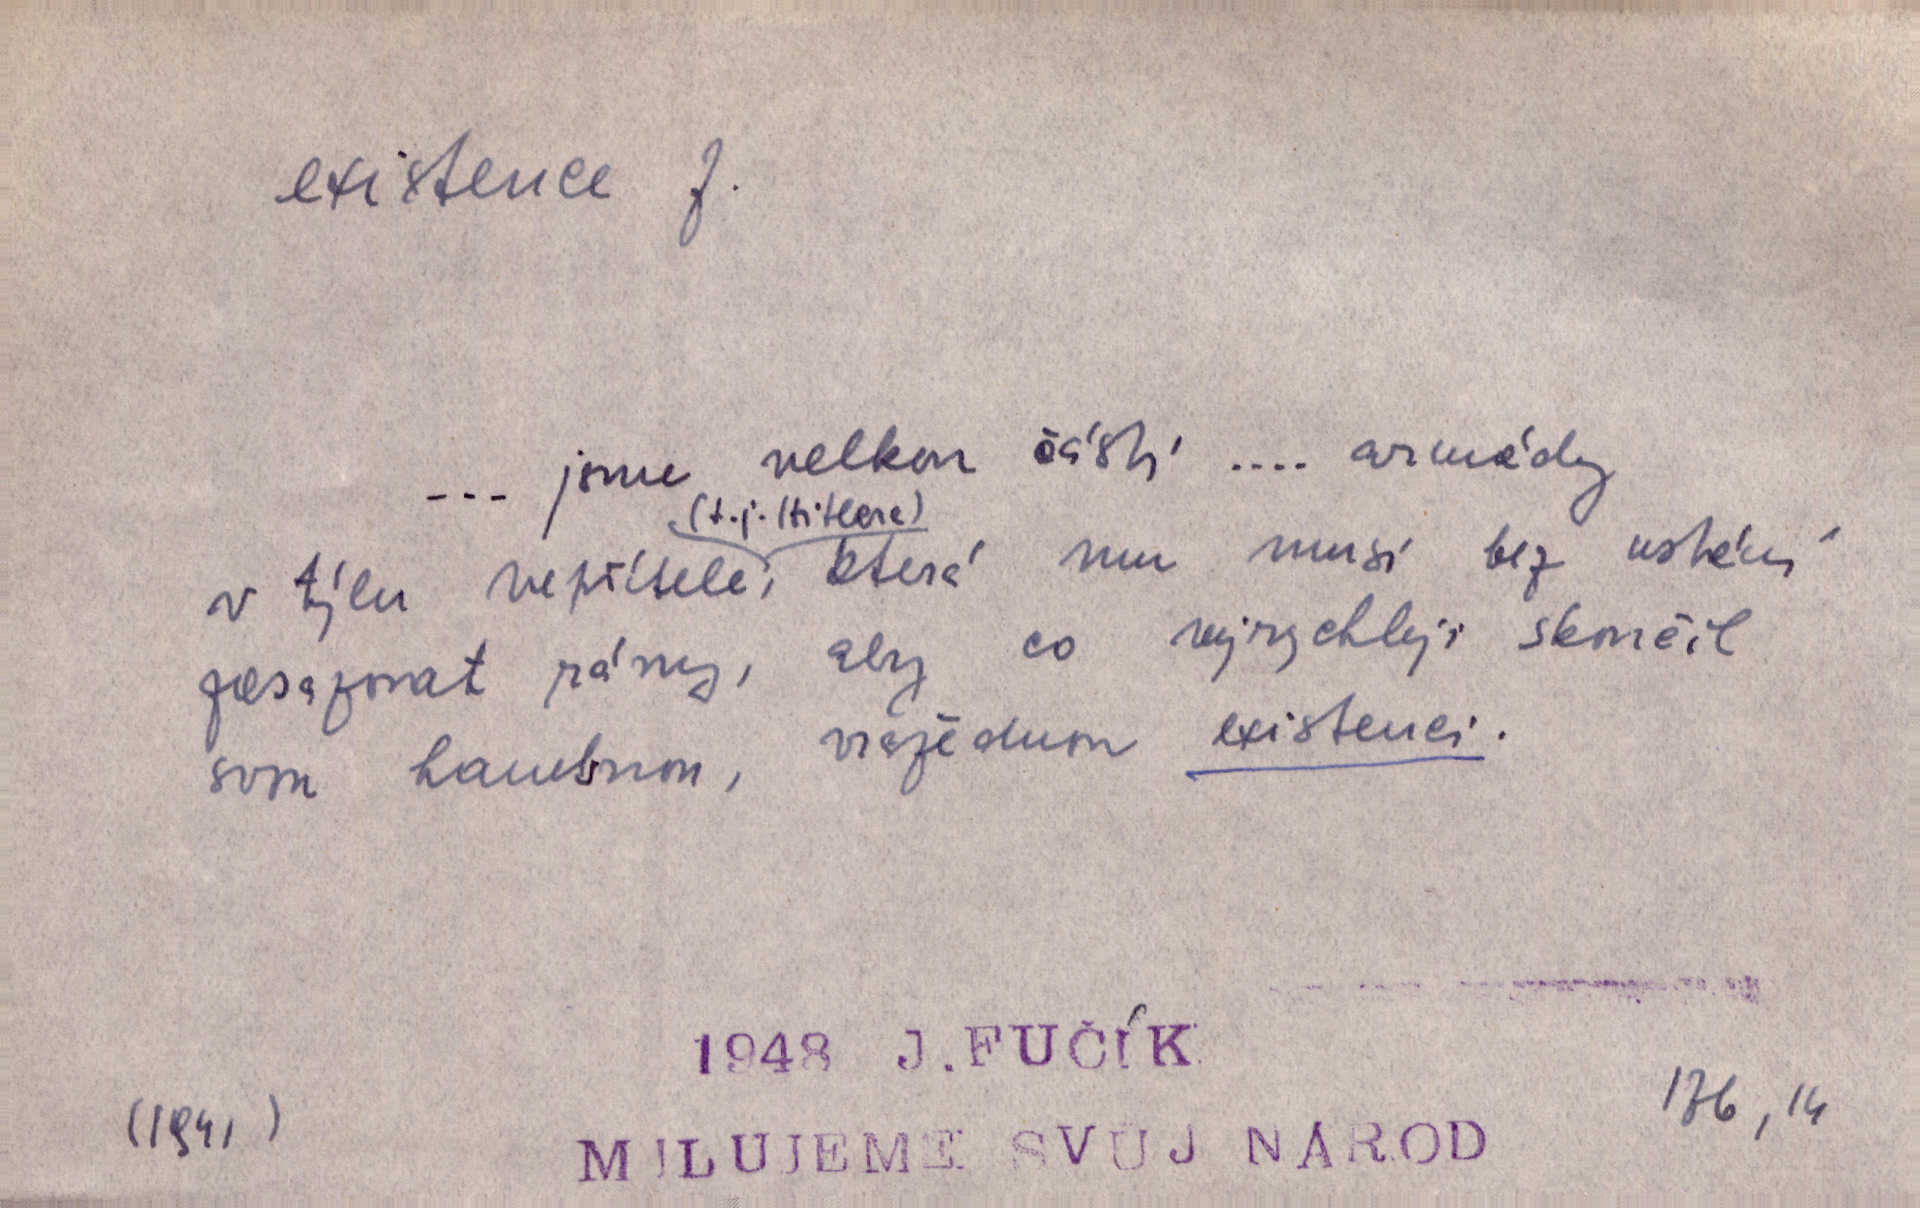 existence f.
--- jsme velkou částí .... armády
(t.j. Hitlera)
v týlu nepřítele, která mu musí bez ustání
zasazovat rány, aby co nejrychleji skončil
svou hanebnou, vražednou existenci.
1948 J. FUČÍK
(1941)
176, 14
MILUJEME SVUJ NAROD